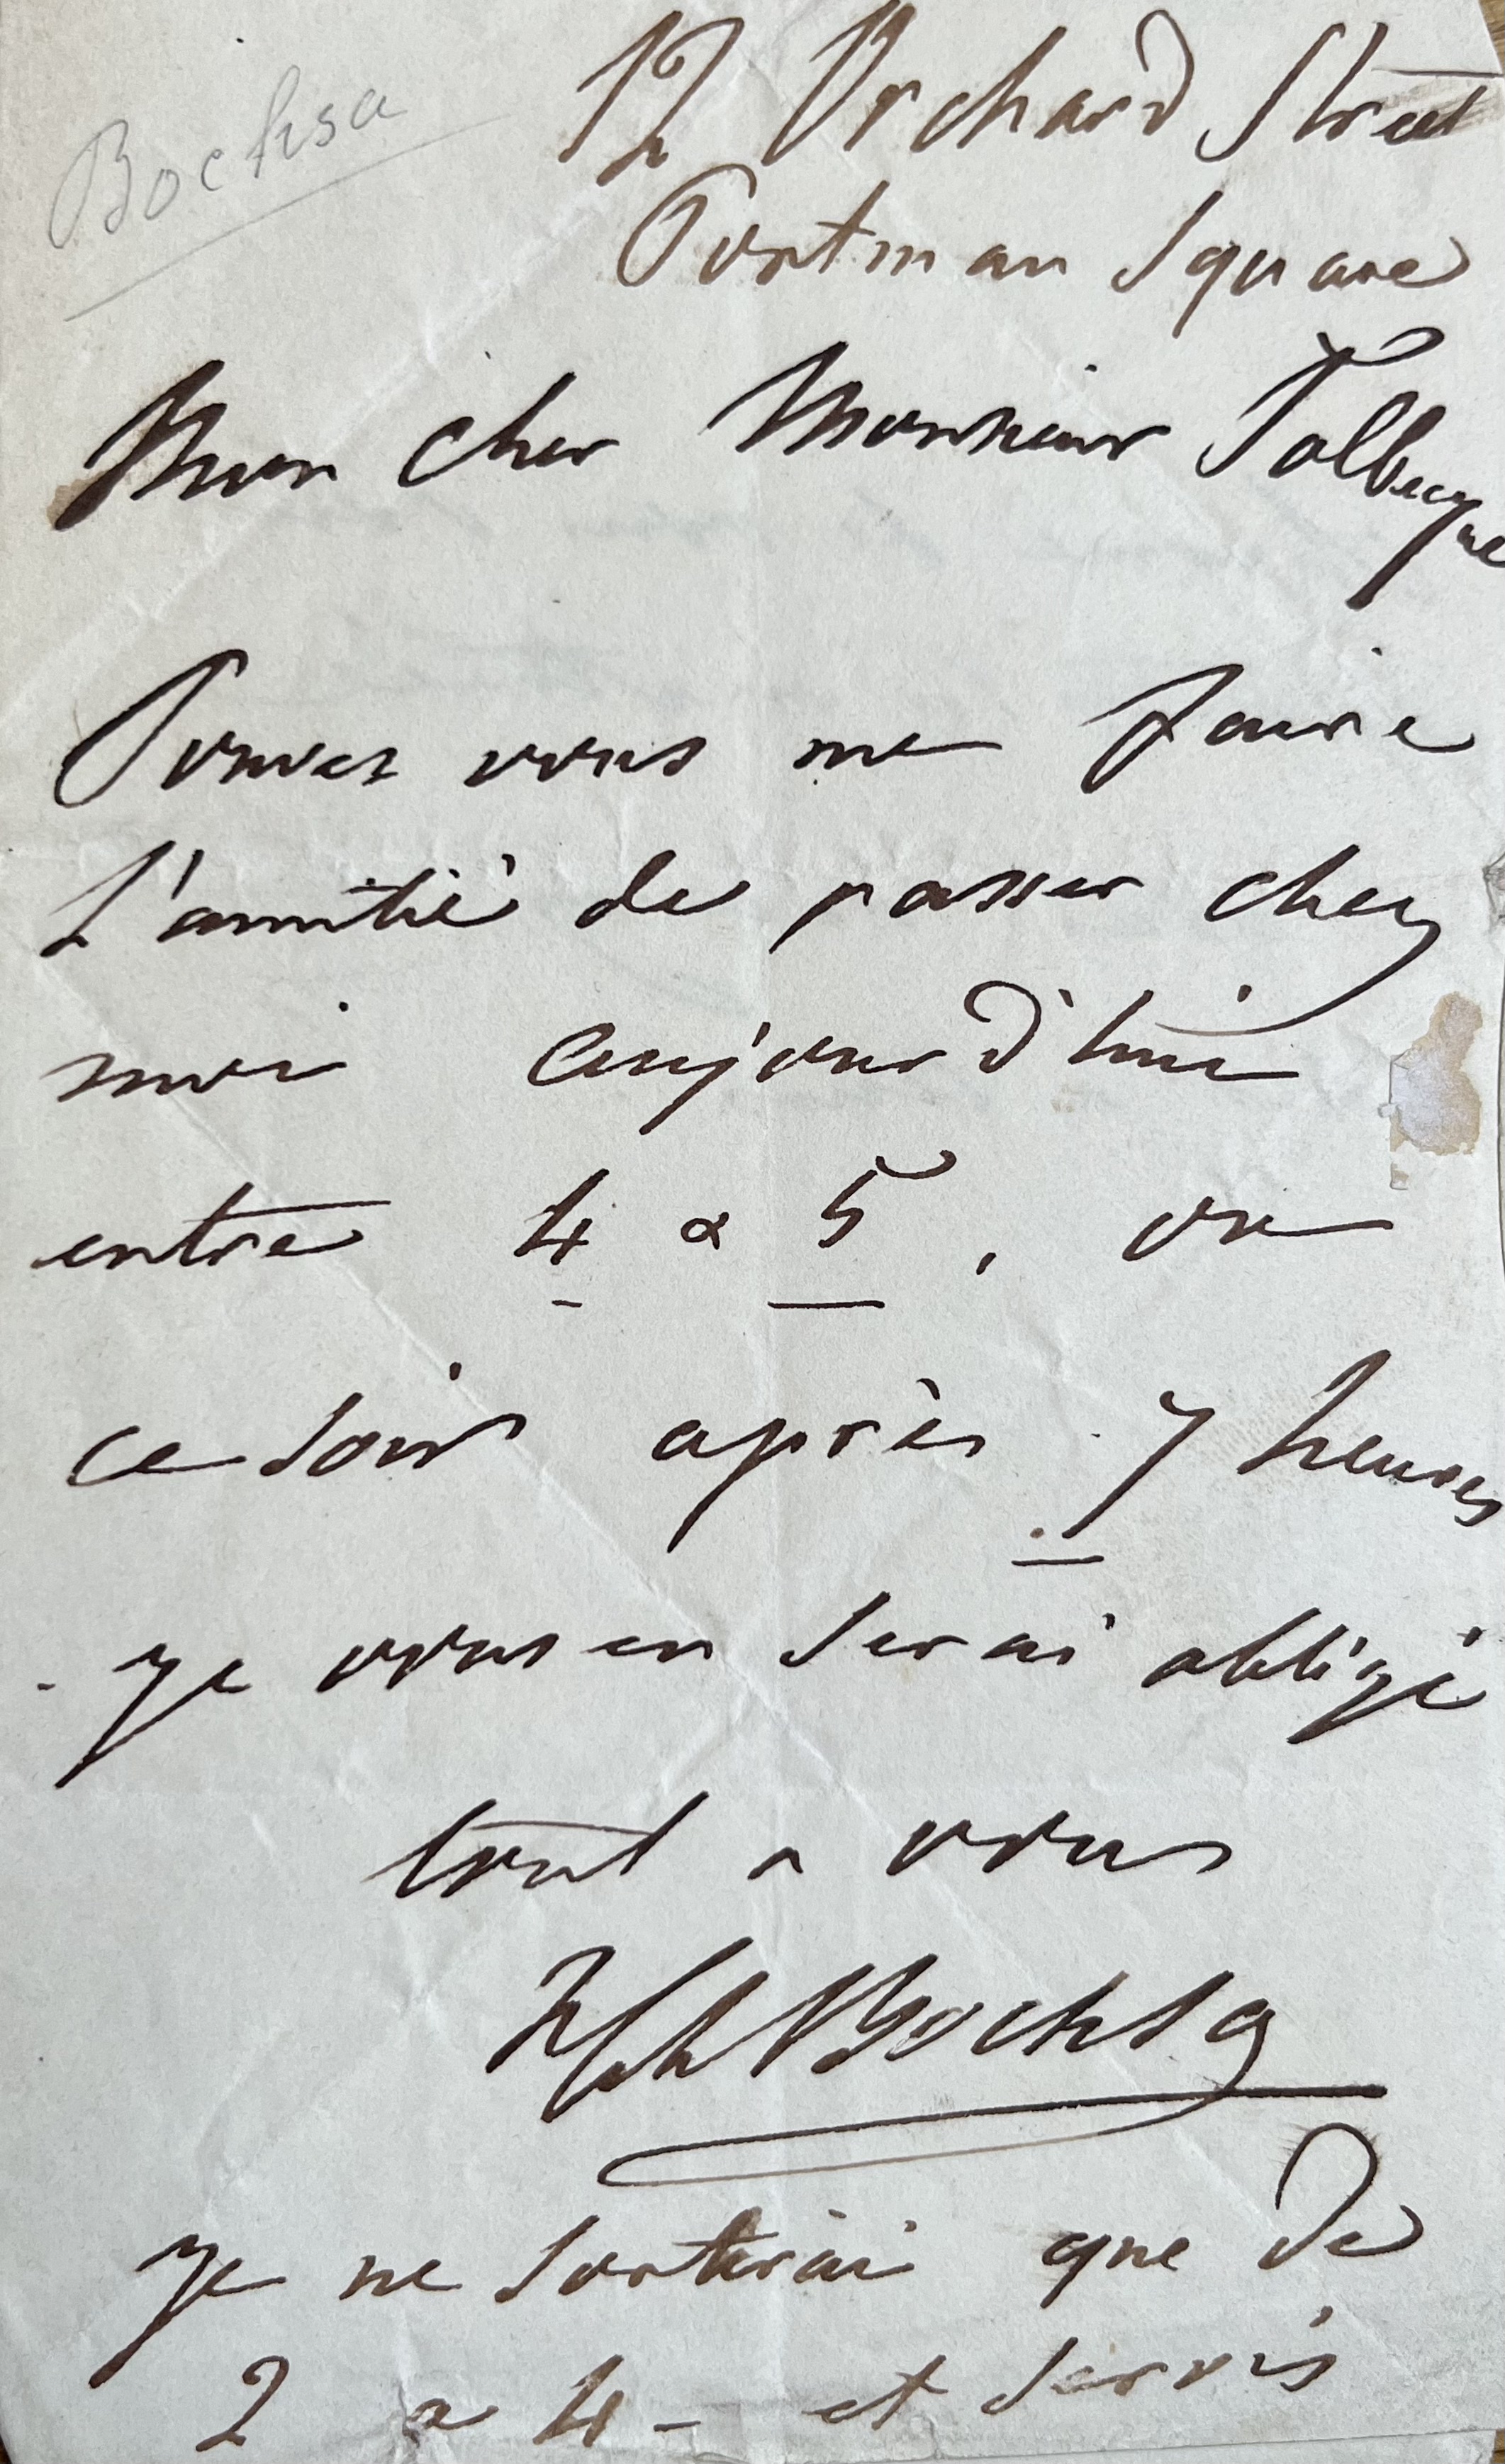 Bochsa
12 Orchard Street
Portman Square
Mon cher Monsieur Tolbecque
Pouvez vous me faire
L'amitié de passer chez
moi aujourd'hui
entre 4 & 5, ou
ce soir après 7 heures
je vous en serai obligé
tout a vous
Bochsa
Je ne sortirai que de
2 a 4 - et